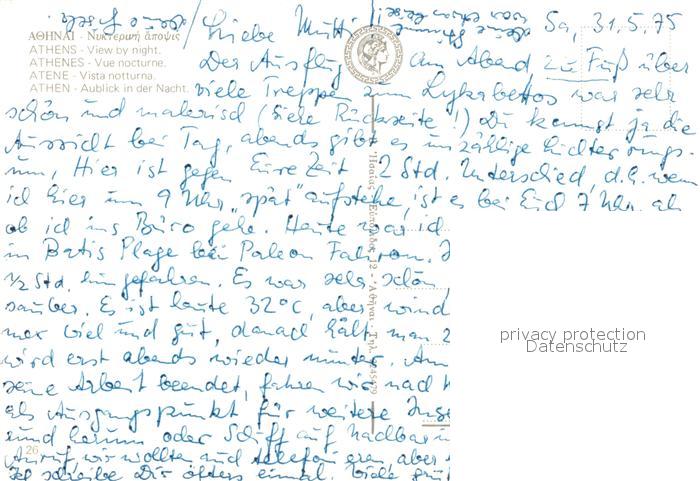 ΑΘΗΝΑΙ - Νυκτερινή ἄποψις
ATHENS - View by night.
ATHENES - Vue nocturne.
ATENE - Vista notturna.
ATHEN - Aublick in der Nacht.
Sa, 31.5.75
Liebe Mutti!
Der Ausflug am Abend zu Fuß über
viele Treppe zum Lykabettos war sehr
schön und malerisch (siehe Rückseite!) Du kennst ja die
Aussicht bei Tag, abends gibt es unzählige Lichter rings-
um, Hier ist gegen Eure Zeit 2 Std. Unterschied, d.h. wenn
ich hier um 9 Uhr "spät" aufstehe, ist es bei Euch 7 Uhr. als
ob ich ins Büro gehe. Heute war ich
in Batis Plage bei Paleon Faliron.
½ Std. hingefahren. Es war sehr schön,
sauber. Es ist heute 32°C, aber wind
mer viel und gut, danach hält man
wird erst abends wieder munter.
seine Arbeit beendet, fahren wir nach
als Ausgangspunkt für weitere Inse
rund herum oder Schiff auf Nachbar
Anruf, wir wollten und telefonieren aber
Ich schreibe Dir öfters einmal. Viele grü
26
privacy protection
Datenschutz